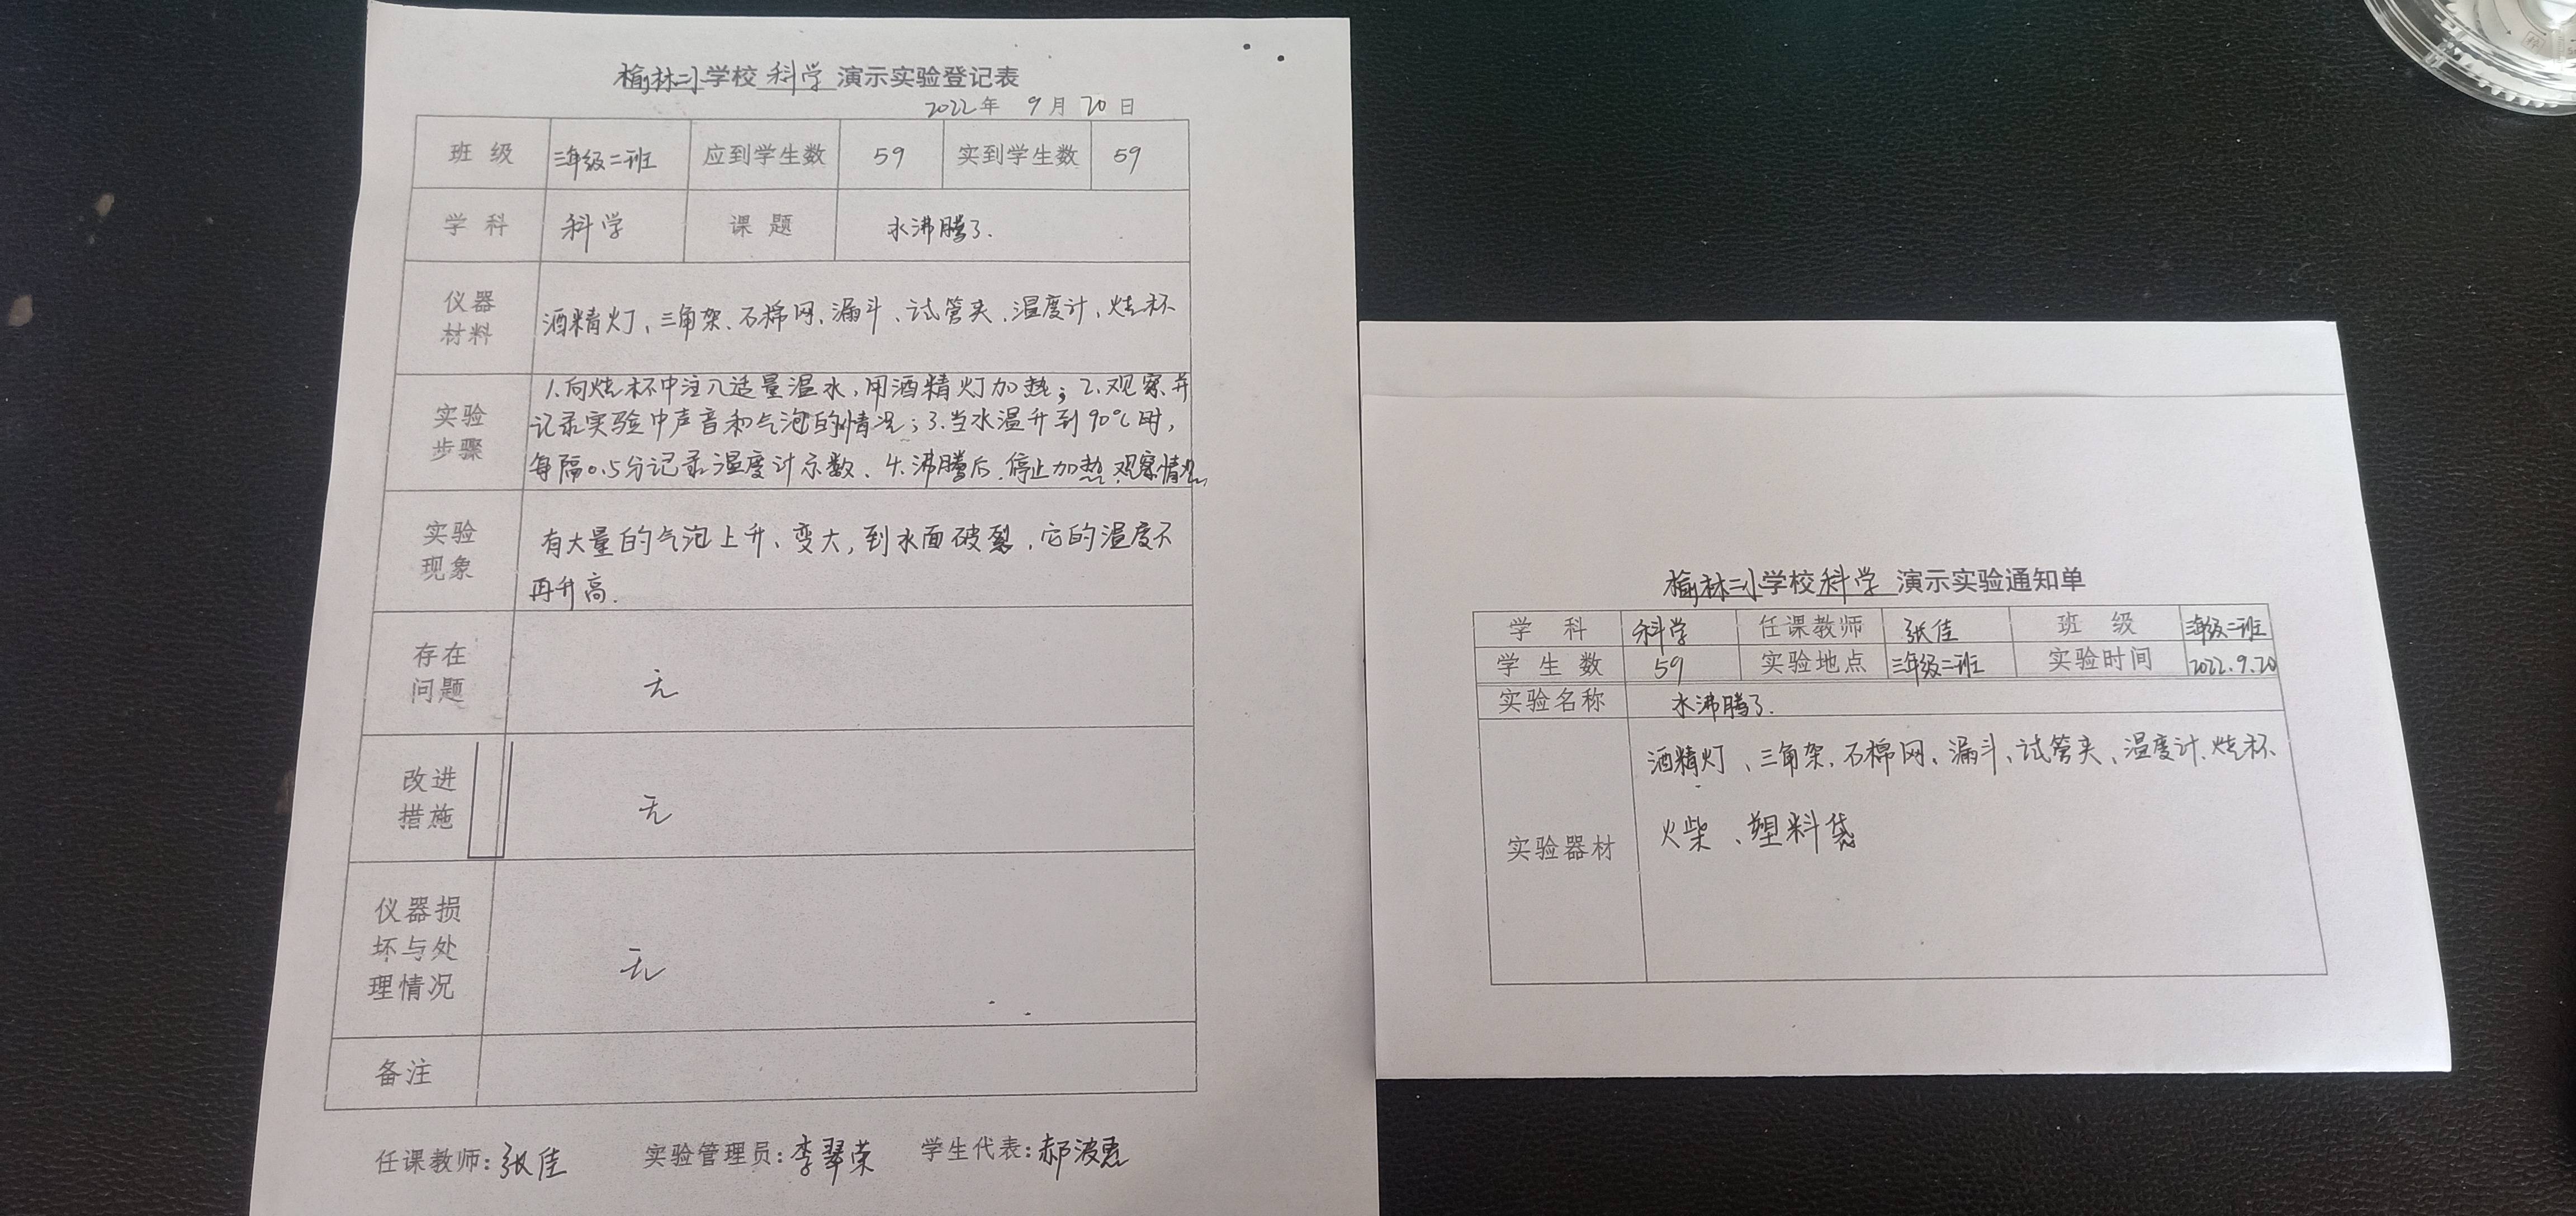 榆林二小学校 科学 演示实验登记表
2022年 9月20日
班 级 三年级二班 应到学生数 59 实到学生数 59
学 科 科学 课 题 水沸腾了.
仪器
材料
酒精灯、三角架、石棉网、漏斗、试管夹、温度计、烧杯
实验
步骤
1.向烧杯中注入适量温水,用酒精灯加热;2.观察并
记录实验中声音和气泡的情况;3.当水温升到90℃时,
每隔0.5分记录温度计示数、4.沸腾后.停止加热.观察情况
实验
现象
有大量的气泡上升、变大,到水面破裂.它的温度不
再升高.
存在
问题
无
改进
措施
无
仪器损
坏与处
理情况
无
备注
任课教师:张佳 实验管理员:李翠荣 学生代表:郝波
榆林二小学校科学 演示实验通知单
学 科 科学 任课教师 张佳 班 级 三年级二班
学 生 数 59 实验地点 三年级二班 实验时间 2022.9.20
实验名称 水沸腾了.
实验器材
酒精灯、三角架、石棉网、漏斗、试管夹、温度计、烧杯、
火柴、塑料袋